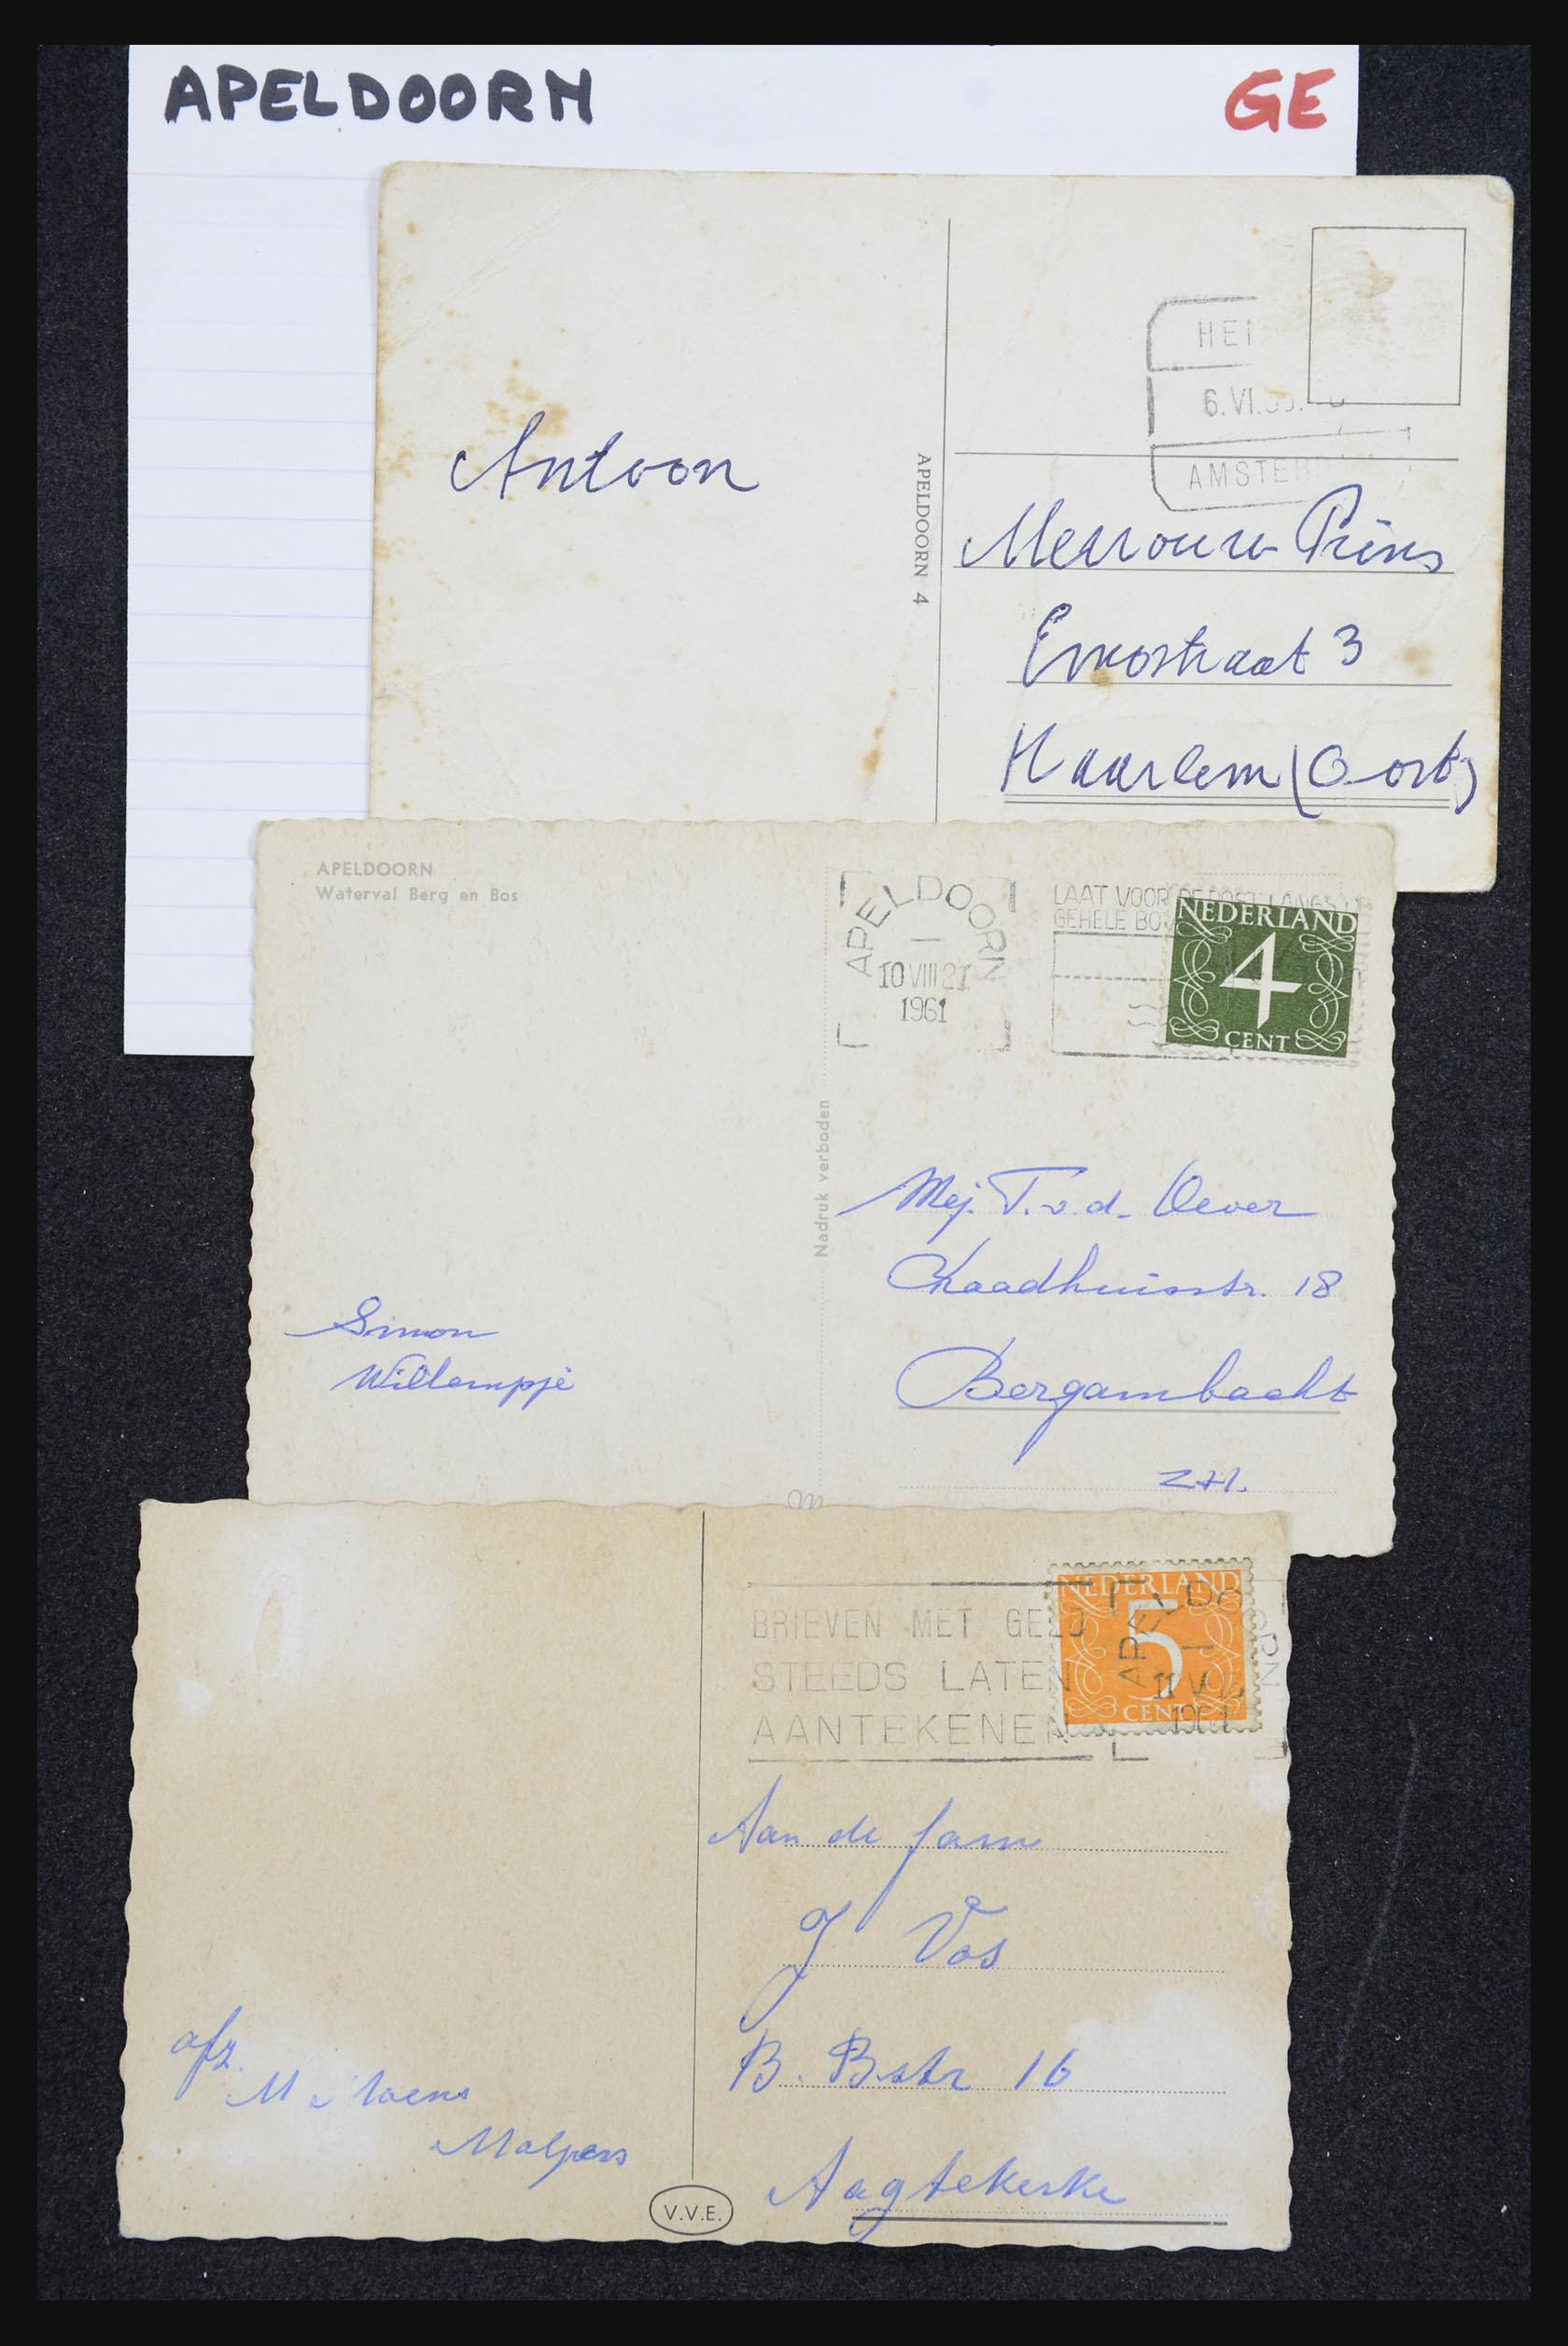 APELDOORN
GE
HEI
6.VI.
AMSTER
Antoon
APELDOORN 4
Mevrouw Prins
Haarlem (Oost)
APELDOORN
Waterval Berg en Bos
APELDOORN
10 VIII 21
1961
LAAT VOOR DE POST LANGS
GEHELE BO
NEDERLAND
4
CENT
Nadruk verboden
Mej. T. v. d. Oever
Raadhuisstr. 18
Bergambacht
ZH.
Simon
Willempje
BRIEVEN MET GELD
STEEDS LATEN
AANTEKENEN
NEDERLAND
5
CENT
APELDOORN
11
Aan de fam
J Vos
B. Bstr 16
Aagtekerke
afz.
V.V.E.